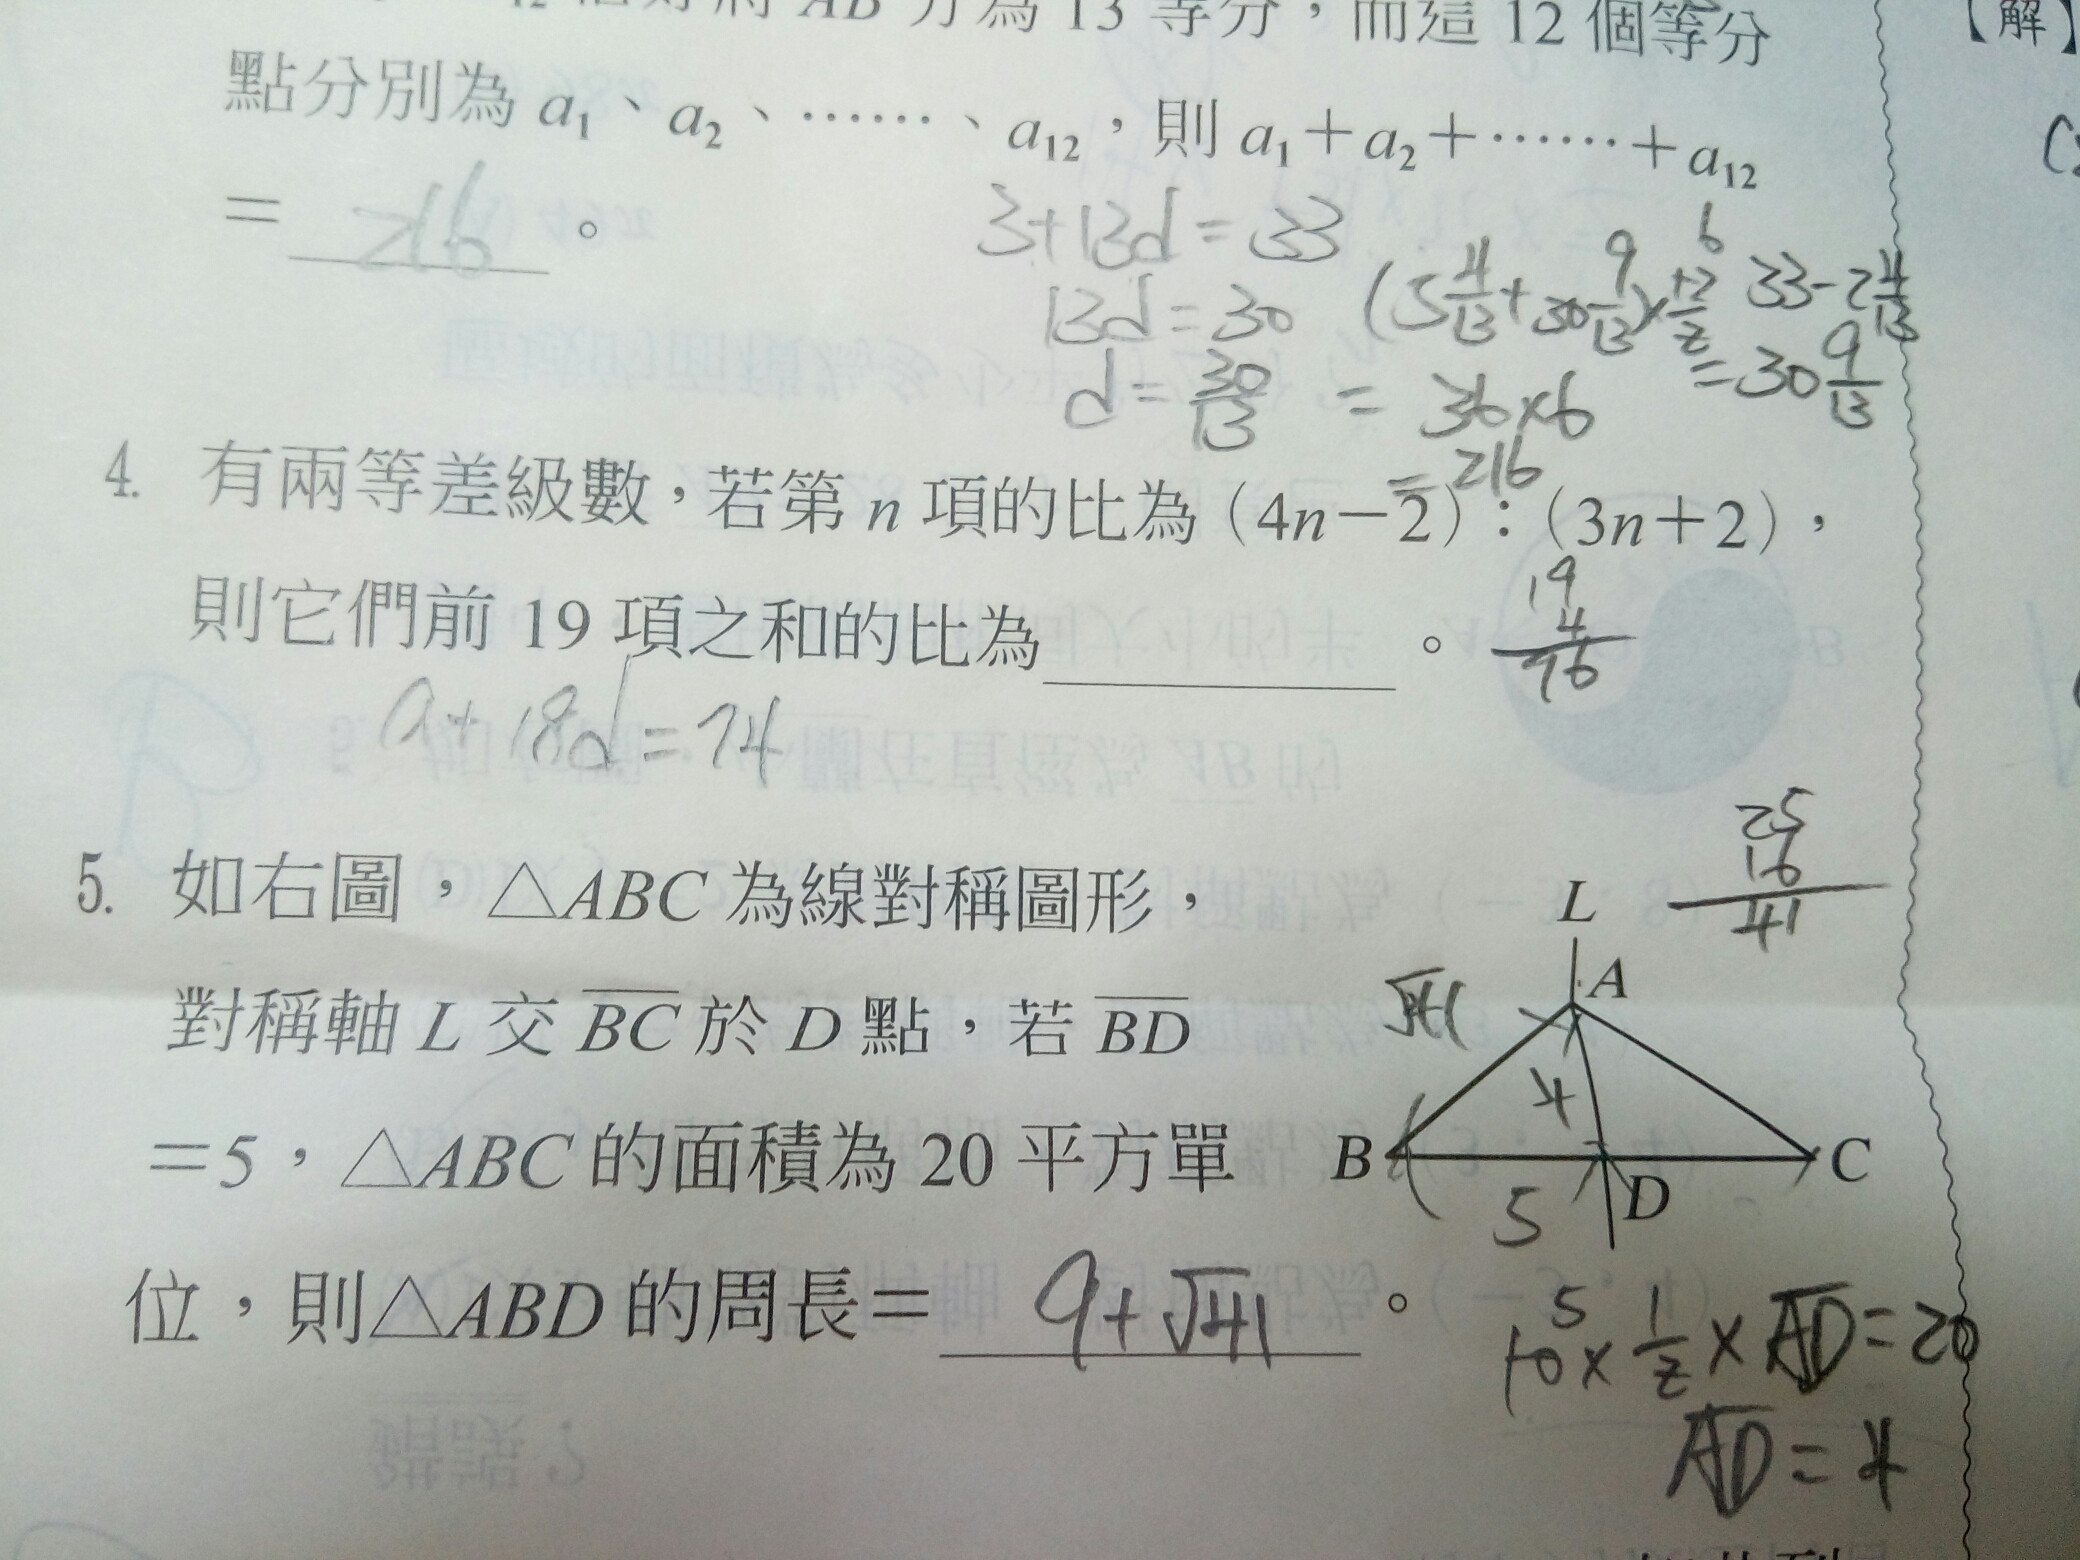 AB 分為 13 等分，而這 12 個等分
【解】
點分別為 a₁、a₂、……、a₁₂，則 a₁＋a₂＋……＋a₁₂
＝ 216 。
3+13d=33
13d=30
d=30/13
(5 4/13+30 9/13)×12/2 6
=36×6
=216
33-2 4/13
=30 9/13
4. 有兩等差級數，若第 n 項的比為（4n－2）：（3n＋2），
則它們前 19 項之和的比為＿＿＿＿。
19
4
76
a+18d=74
5. 如右圖，△ABC 為線對稱圖形，
對稱軸 L 交 BC 於 D 點，若 BD
＝5，△ABC 的面積為 20 平方單
位，則△ABD 的周長＝ 9+√41 。
25
16
41
L
A
√41
4
B
C
5
D
5
10×1/2×AD=20
AD=4